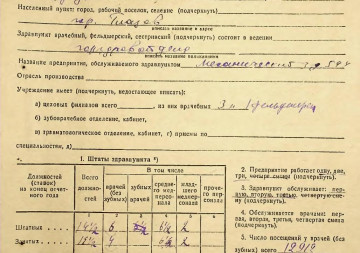 Населенный пункт: город, рабочий поселок, селение (подчеркнуть)
гор. Глазов
Здравпункт врачебный, фельдшерский, сестринский (подчеркнуть) состоит в ведении
горздравотдела
Название предприятия, обслуживаемого здравпунктом механический з-д
Отрасль производства
Учреждение имеет (подчеркнуть, недостающее вписать):
а) цеховых филиалов всего из них врачебных 3 и фельдшерск
б) зубоврачебное отделение, кабинет,
в) травматологическое отделение, кабинет, г) приемы по
специальностям, д)
I. Штаты здравпункта
Должностей (ставок) на конец отчетного года
Всего должностей
В том числе
врачей (без зубных)
зубных врачей
среднего персонала
младшего персонала
прочего персонала
Штатных 6 2
Занятых 4 2
2. Предприятия работает одну, две, три, четыре смены (подчеркнуть).
3. Здравпункт обслуживает: первую, вторую, третью, четвертую смену (подчеркнуть).
4. Обслуживается врачами: первая, вторая, третья, четвертая смена (подчеркнуть).
5. Число посещений у врачей (без зубных) всего